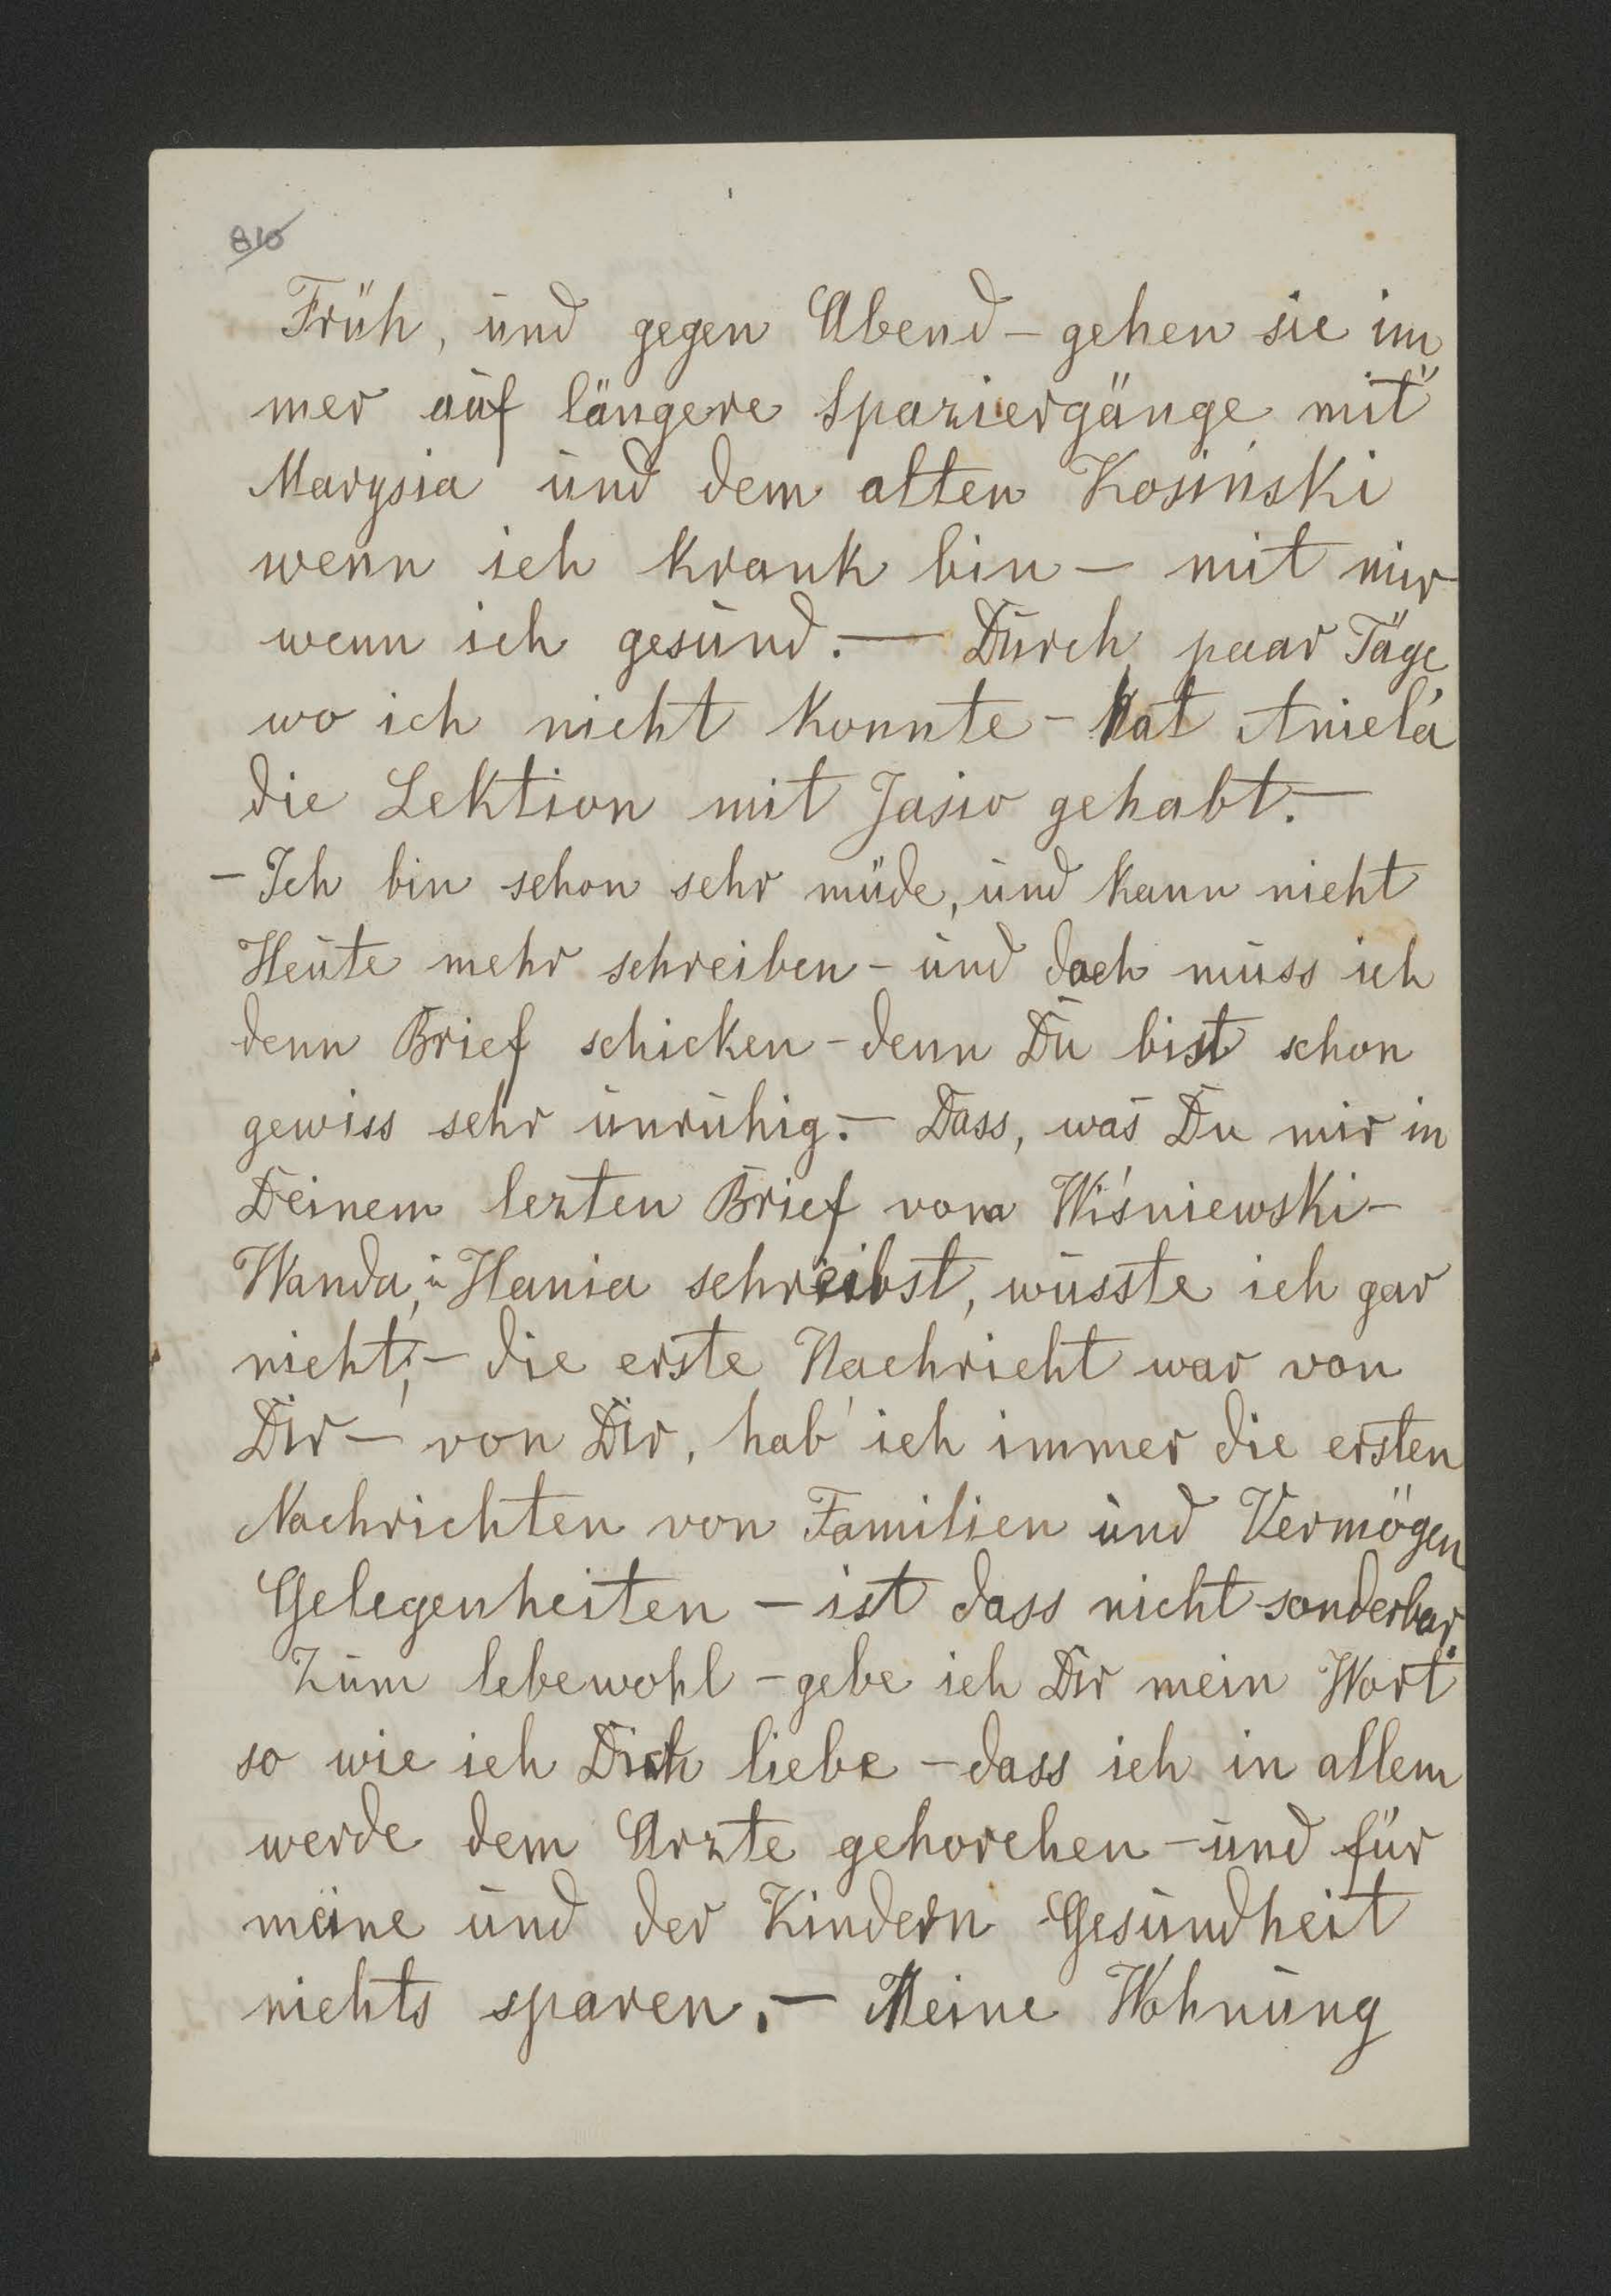 810
Früh, und gegen Abend – gehen sie im
mer auf längere Spaziergänge mit
Marysia und dem alten Kosiński
wenn ich krank bin – mit mir
wenn ich gesund. – Durch paar Täge
wo ich nicht konnte – hat Aniela
die Lektion mit Jasio gehabt. –
– Ich bin schon sehr müde, und kann nicht
Heute mehr schreiben – und doch muss ich
denn Brief schicken – denn Du bist schon
gewiss sehr unruhig. – Dass, was Du mir in
Deinem lezten Brief vom Wiśniewski –
Wanda, u Hania schreibst, wusste ich gar
nicht; – die erste Nachricht war von
Dir – von Dir, hab' ich immer die ersten
Nachrichten von Familien und Vermögen
Gelegenheiten – ist dass nicht sonderbar.
Zum lebewohl – gebe ich Dir mein Wort
so wie ich Dich liebe – dass ich in allem
werde dem Arzte gehorchen – und für
meine und der Kindern Gesundheit
nichts sparen. – Meine Wohnung